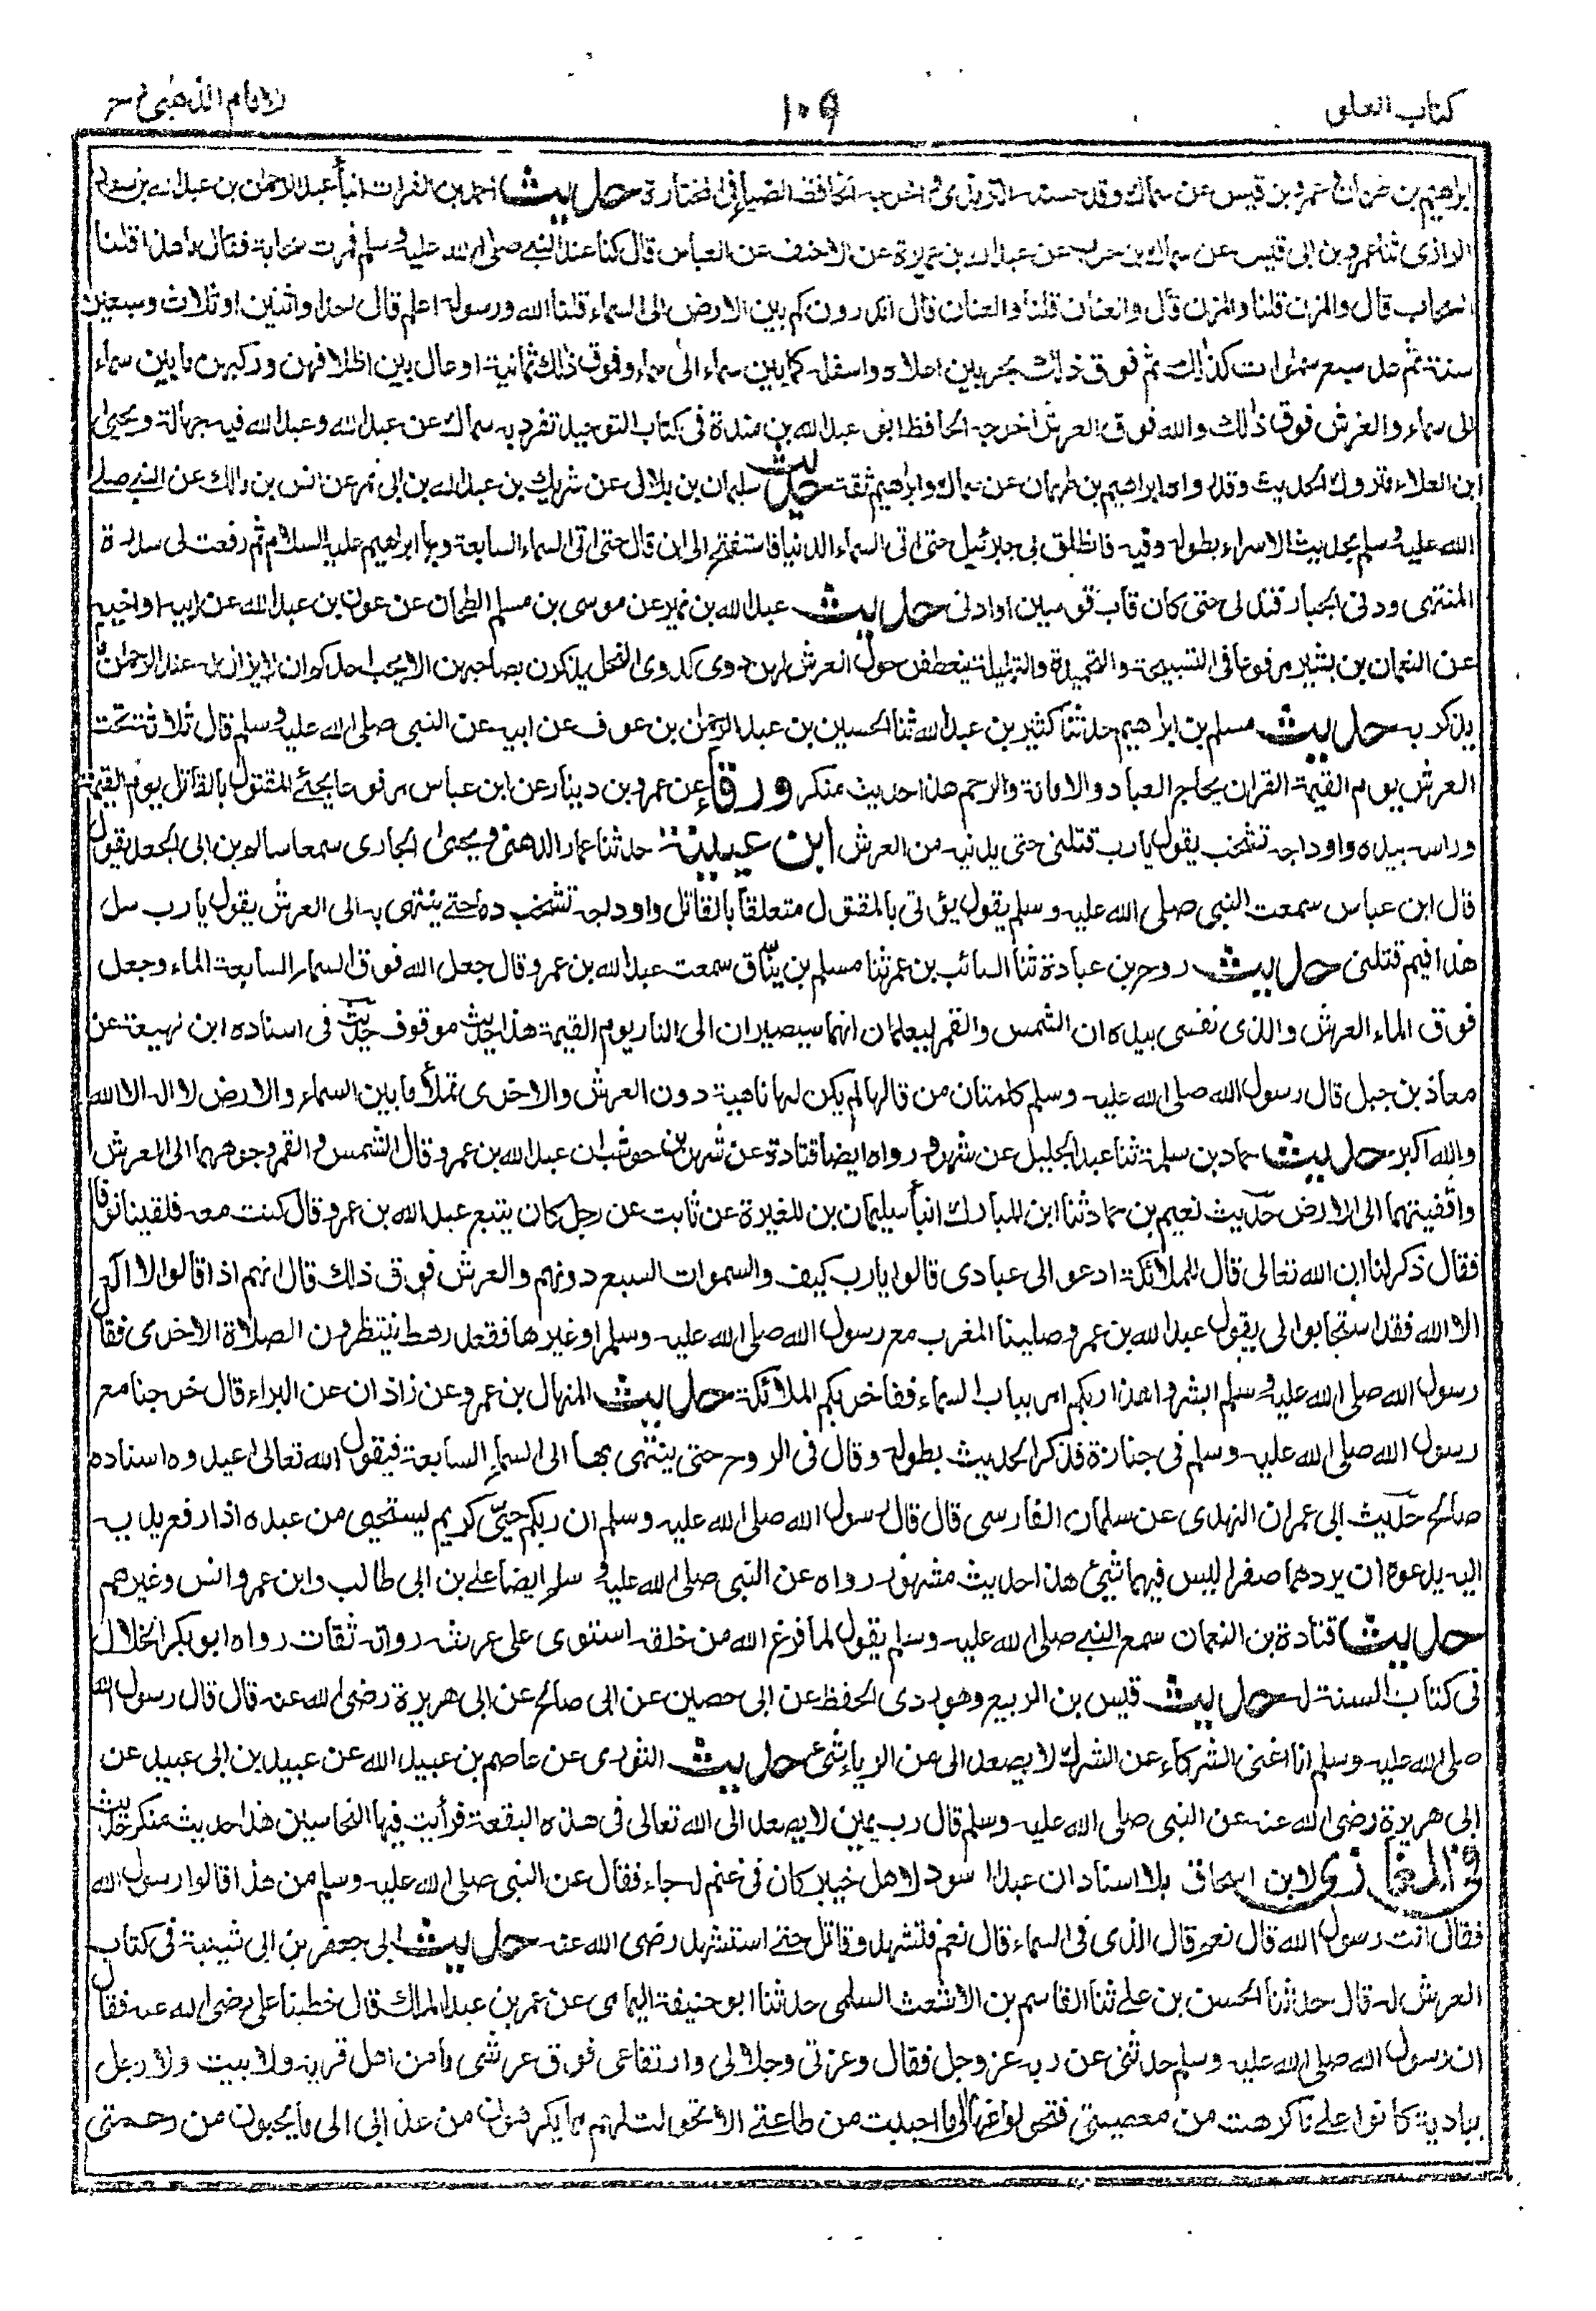 كتاب العلو
١٠٩
للامام الذهبي
ابراهيم بن عمرو بن قيس عن سماك وقد حسنه الترمذى واخرجه الحافظ الضياء فى المختارة حديث احمد بن الفرات انبأ عبد الرحمن بن عبد الله بن سعد
الرازى ثنا عمرو بن ابى قيس عن سماك بن حرب عن عبد الله بن عميرة عن الاحنف عن العباس قال كنا عند النبي صلى الله عليه وسلم فمرت سحابة فقال ما هذا قلنا
السحاب قال والمزن قلنا والمزن قال والعنان قلنا والعنان قال اتدرون كم بين الارض الى السماء قلنا الله ورسوله اعلم قال احدا واثنين او ثلاث وسبعين
سنة ثم عد سبع سموات كذلك ثم فوق ذلك بحر بين اعلاه واسفله كما بين سماء الى سماء وفوق ذلك ثمانية اوعال بين اظلافهن وركبهن ما بين سماء
الى سماء والعرش فوق ذلك والله فوق العرش اخرجه الحافظ ابو عبد الله بن مندة فى كتاب التوحيد تفرد به سماك عن عبد الله وعبد الله فيه جهالة ويحيى
ابن العلاء متروك الحديث وقد رواه ابراهيم بن طهمان عن سماك وابراهيم ثقة حديث سليمان بن بلال عن شريك بن عبد الله بن ابى نمر عن انس بن مالك عن النبي صلى
الله عليه وسلم بحديث الاسراء بطوله وفيه فانطلق بى جبرئيل حتى اتى السماء الدنيا فاستفتح الى ان قال حتى اتى السماء السابعة وبها ابراهيم عليه السلام ثم رفعت لى سدرة
المنتهى ودنى الجبار فتدلى حتى كان قاب قوسين او ادنى حديث عبد الله بن نمير عن موسى بن مسلم الطحان عن عون بن عبد الله عن ابيه او اخيه
عن النعمان بن بشير مرفوعا فى التسبيحة والتحميدة والتهليلة ينعطفن حول العرش لهن دوى كدوى النحل يذكرن بصاحبهن الا يحب احدكم ان لا يزال له عند الرحمن
يذكر به حديث مسلم بن ابراهيم حدثنا كثير بن عبد الله ثنا الحسين بن عبد الرحمن بن عوف عن ابيه عن النبى صلى الله عليه وسلم قال ثلاثة تحت
العرش يوم القيمة القران يحاج العباد والامانة والرحم هذا حديث منكر ورقاء عن عمرو بن دينار عن ابن عباس مرفوعا يجئ المقتول بالقاتل يوم القيمة
وراسه بيده واوداجه تشخب يقول يا رب قتلنى حتى يدنيه من العرش ابن عيينة حدثنا عمار الدهنى ويحيى الجارى سمعا سالم بن ابى الجعد يقول
قال ابن عباس سمعت النبى صلى الله عليه وسلم يقول يؤتى بالمقتول متعلقا بالقاتل واوداجه تشخب دما حتى ينتهى به الى العرش يقول يا رب سل
هذا فيم قتلنى حديث روح بن عبادة ثنا السائب بن عمر ثنا مسلم بن ينّاق سمعت عبد الله بن عمرو قال جعل الله فوق السماء السابعة الماء وجعل
فوق الماء العرش والذى نفسى بيده ان الشمس والقمر ليعلمان انهما سيصيران الى النار يوم القيمة هذا حديث موقوف حديث فى اسناده ابن لهيعة عن
معاذ بن جبل قال رسول الله صلى الله عليه وسلم كلمتان من قالها لم يكن لها ناهية دون العرش والاخرى تملأ ما بين السماء والارض لا اله الا الله
والله اكبر حديث حماد بن سلمة ثنا عبد الجليل عن شهر ورواه ايضا قتادة عن شهر بن حوشب ان عبد الله بن عمرو قال الشمس والقمر وجوههما الى العرش
واقفيتهما الى الارض حديث نعيم بن حماد ثنا ابن المبارك انبأ سليمان بن المغيرة عن ثابت عن رجل كان يتبع عبد الله بن عمرو قال كنت معه فلقينا نوفا
فقال ذكر لنا ان الله تعالى قال للملائكة ادعوا الى عبادى قالوا يا رب كيف والسموات السبع دونهم والعرش فوق ذلك قال انهم اذا قالوا لا اله
الا الله فقد استجابوا الى يقول عبد الله بن عمرو صلينا المغرب مع رسول الله صلى الله عليه وسلم او غيرها فقعد رهط ينتظرون الصلاة الاخرى فقال
رسول الله صلى الله عليه وسلم ابشروا هذا ربكم امر بباب السماء ففاخر بكم الملائكة حديث المنهال بن عمرو عن زاذان عن البراء قال خرجنا مع
رسول الله صلى الله عليه وسلم فى جنازة فذكر الحديث بطوله وقال فى الروح حتى ينتهى بها الى السماء السابعة فيقول الله تعالى اعيدوه اسناده
صالح حديث ابى عمران النهدى عن سلمان الفارسى قال قال رسول الله صلى الله عليه وسلم ان ربكم حييّ كريم ليستحيى من عبده اذا رفع يديه
اليه يدعوه ان يردهما صفرا ليس فيهما شيئ هذا حديث مشهور رواه عن النبى صلى الله عليه وسلم ايضا على بن ابى طالب وابن عمر وانس وغيرهم
حديث قتادة بن النعمان سمع النبي صلى الله عليه وسلم يقول لما فرغ الله من خلقه استوى على عرشه رواته ثقات رواه ابو بكر الخلال
فى كتاب السنة له حديث قيس بن الربيع وهو ردى الحفظ عن ابى حصين عن ابى صالح عن ابى هريرة رضى الله عنه قال قال رسول الله
صلى الله عليه وسلم انا اغنى الشركاء عن الشرك لا يصعد الى من الرياء شئ حديث الثورى عن عاصم بن عبيد الله عن عبيد بن ابى عبيد عن
ابى هريرة رضى الله عنه عن النبى صلى الله عليه وسلم قال رب يمين لا يصعد الى الله تعالى فى هذه البقعة فرأيت فيها النخاسين هذا حديث منكر حديث
فى المغازى لابن اسحاق بلا اسناد ان عبدا اسود لاهل خيبر كان فى غنم له جاء فقال عن النبى صلى الله عليه وسلم من هذا قالوا رسول الله
فقال انت رسول الله قال نعم قال الذى فى السماء قال نعم فتشهد وقاتل حتى استشهد رضى الله عنه حديث ابى جعفر بن ابى شيبة فى كتاب
العرش له قال حدثنا الحسن بن على ثنا القاسم بن الاشعث السلمى حدثنا ابو حنيفة اليمامى عن عمر بن عبد الملك قال خطبنا على رضى الله عنه فقال
ان رسول الله صلى الله عليه وسلم حدثنى عن ربه عز وجل فقال وعزتى وجلالى وارتفاعى فوق عرشى ما من اهل قرية ولا بيت ولا رجل
ببادية كانوا على ما كرهت من معصيتى فتحولوا عنها الى ما احببت من طاعتى الا تحولت لهم مما يكرهون من عذابى الى ما يحبون من رحمتى